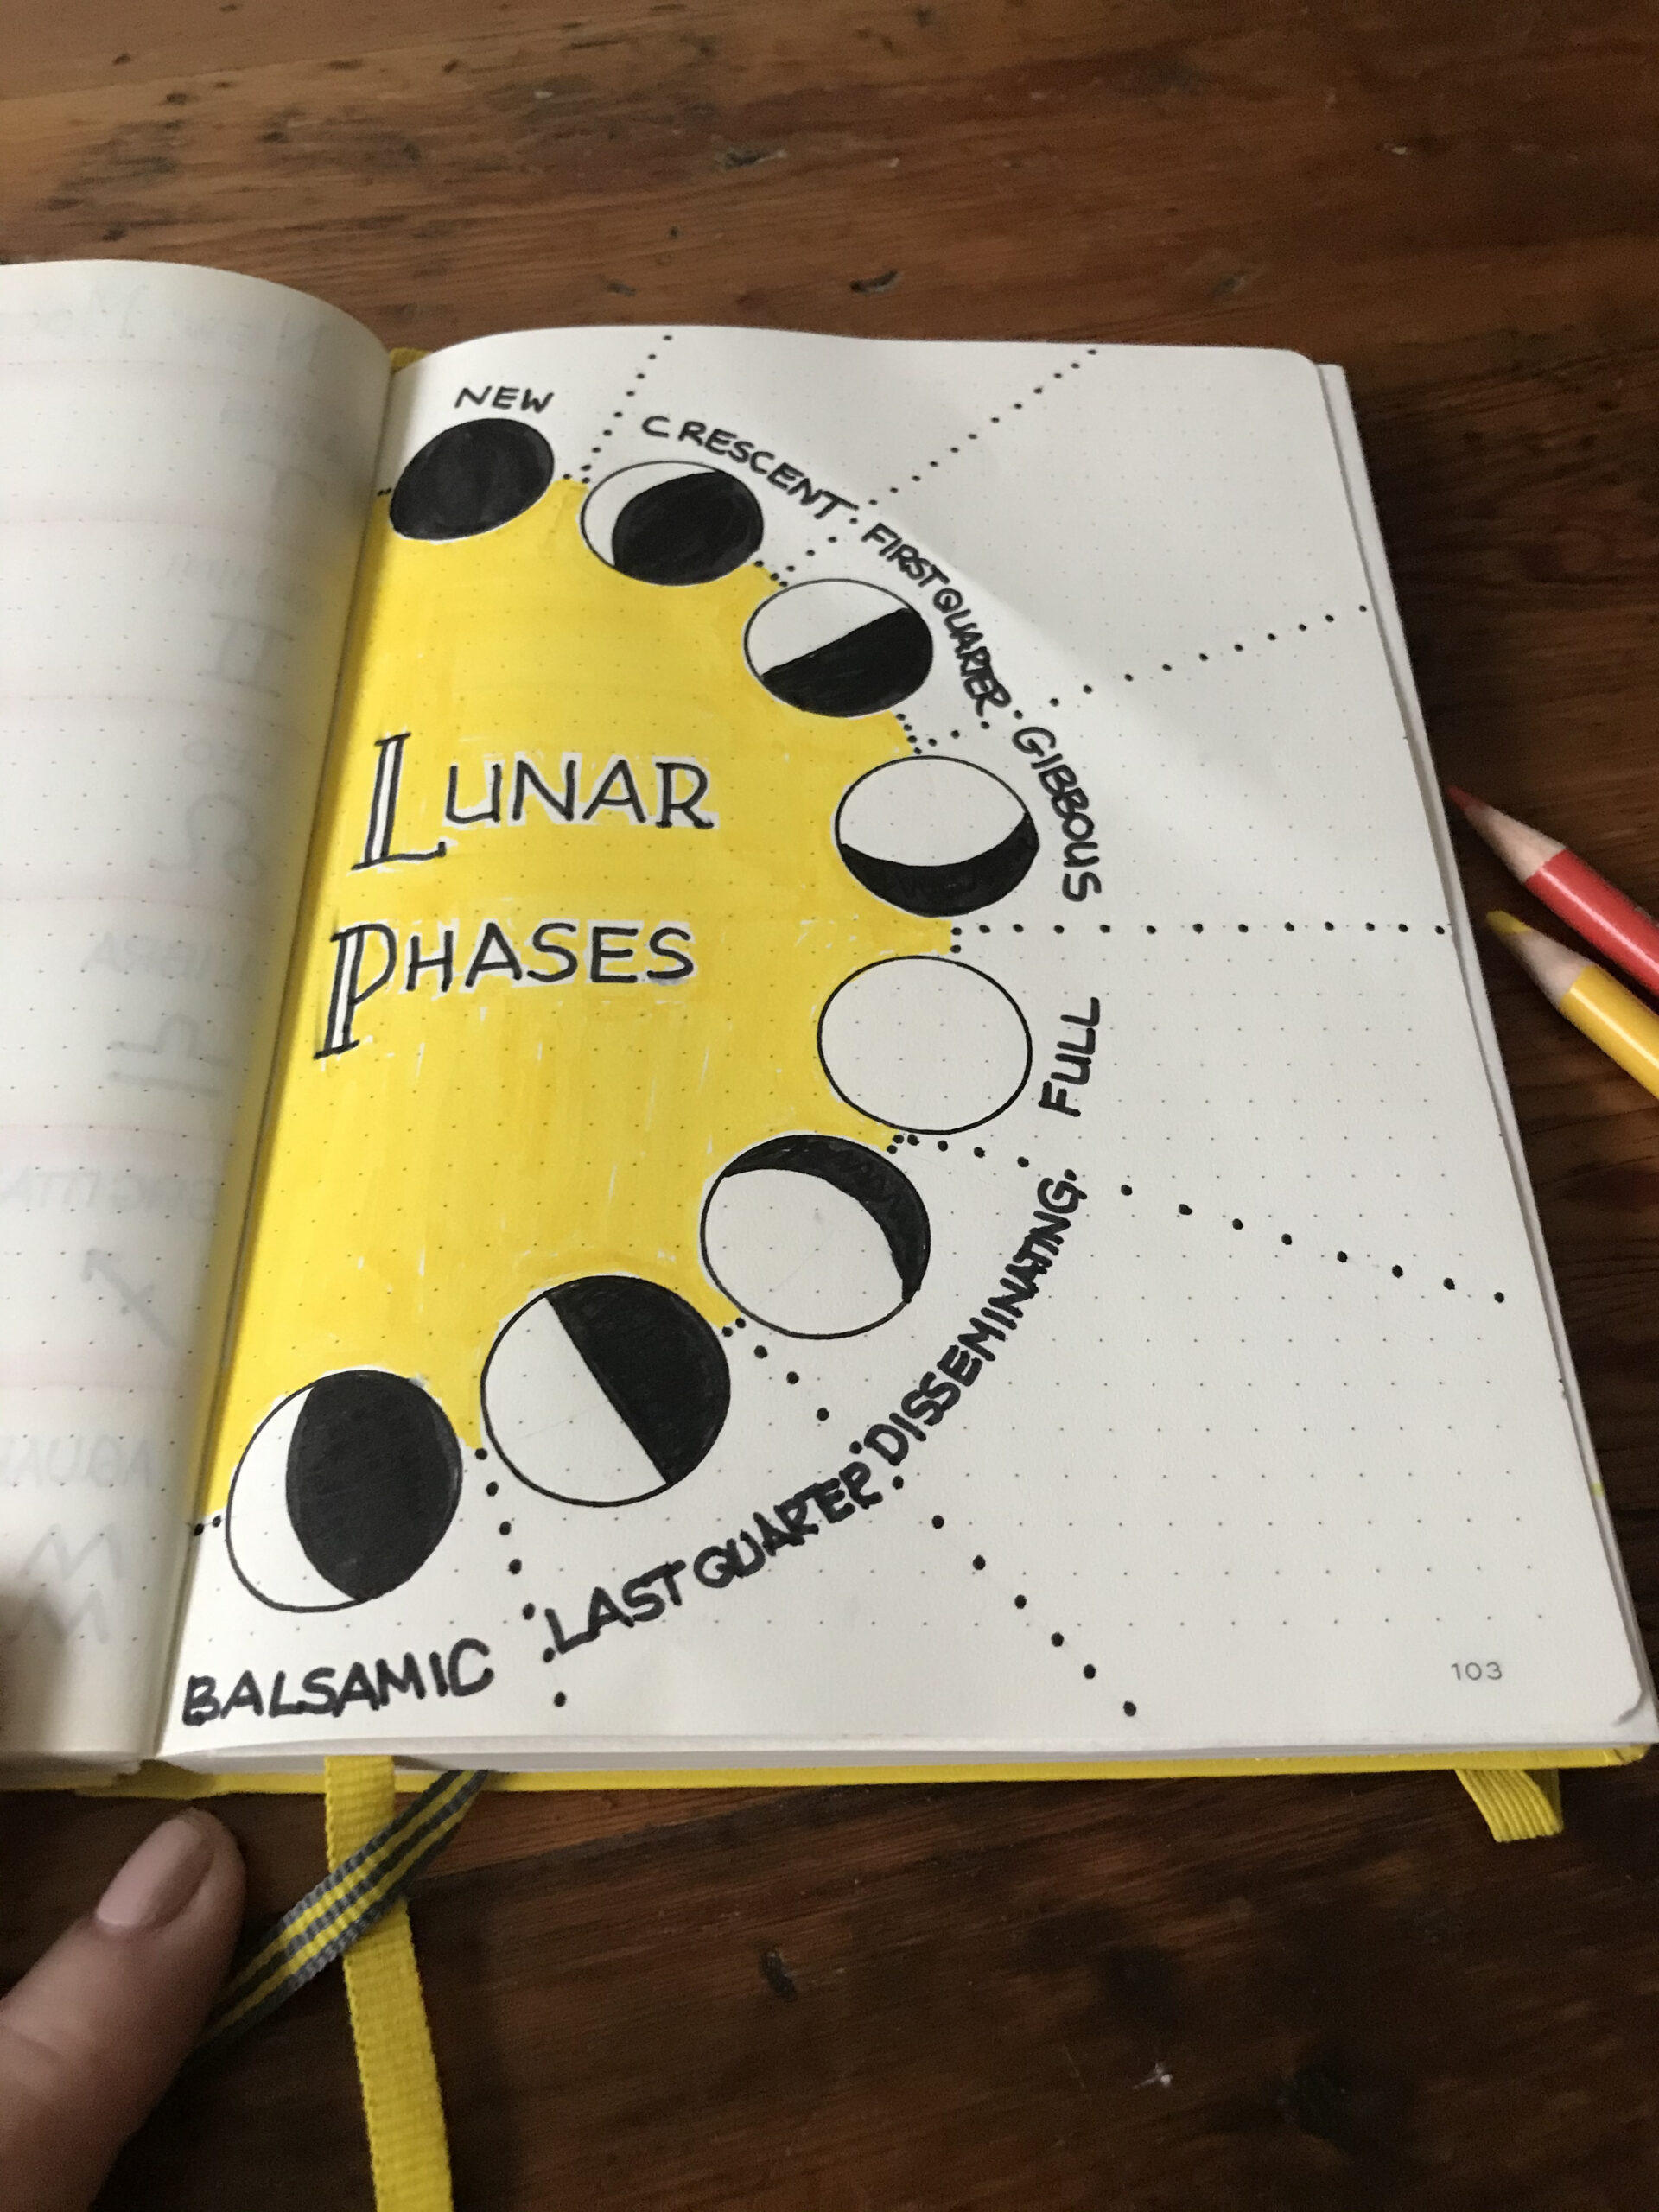 NEW
CRESCENT
FIRST QUARTER
GIBBOUS
LUNAR
PHASES
FULL
DISSEMINATING
LAST QUARTER
BALSAMIC
103